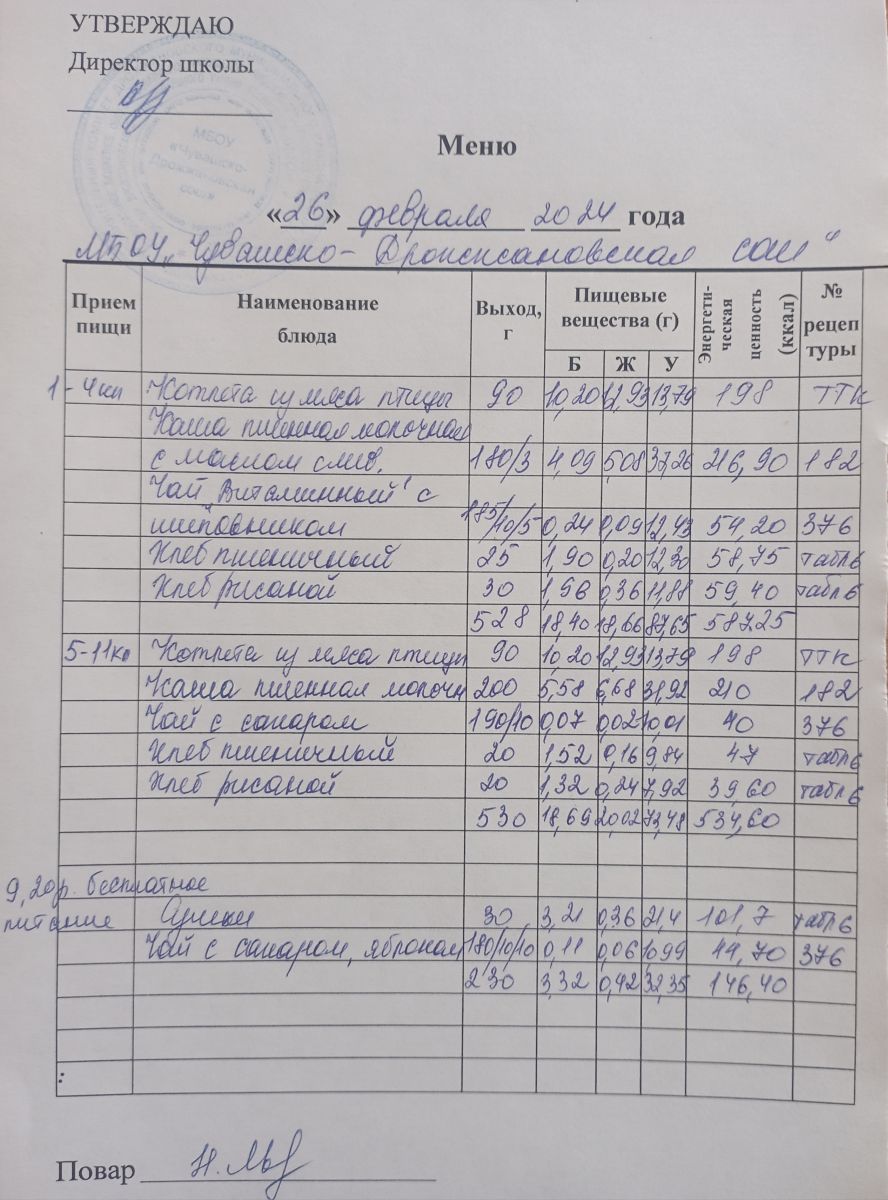 УТВЕРЖДАЮ
Директор школы
МБОУ
«Чувашско-
Дрожжановская
сош»
Меню
«26» февраля 2024 года
МБОУ „Чувашско-Дрожжановская сош"
Прием пищи Наименование блюда Выход, г Пищевые вещества (г) Б Ж У Энергетическая ценность (ккал) № рецептуры
1-4кл Котлета из мяса птицы 90 10,20 12,93 13,79 198 ТТК
Каша пшенная молочная
с маслом слив. 180/3 4,09 5,08 37,26 216,90 182
Чай „Витаминный" с
шиповником 185/10/5 0,24 0,09 12,43 54,20 376
Хлеб пшеничный 25 1,90 0,20 12,30 58,75 табл 6
Хлеб ржаной 30 1,98 0,36 11,88 59,40 табл 6
528 18,40 18,66 87,65 587.25
5-11кл Котлета из мяса птицы 90 10,20 12,93 13,79 198 ТТК
Каша пшенная молочн 200 5,58 6,68 31,92 210 182
Чай с сахаром 190/10 0,07 0,02 10,01 40 376
Хлеб пшеничный 20 1,52 0,16 9,84 47 табл 6
Хлеб ржаной 20 1,32 0,24 7,92 39,60 табл 6
530 18,69 20,02 73,48 534,60
9,20р. бесплатное
питание Сушки 30 3,21 0,36 21,4 101,7 табл 6
Чай с сахаром, яблоком 180/10/10 0,11 0,06 10,99 44,70 376
230 3,32 0,42 32,35 146,40
:
Повар